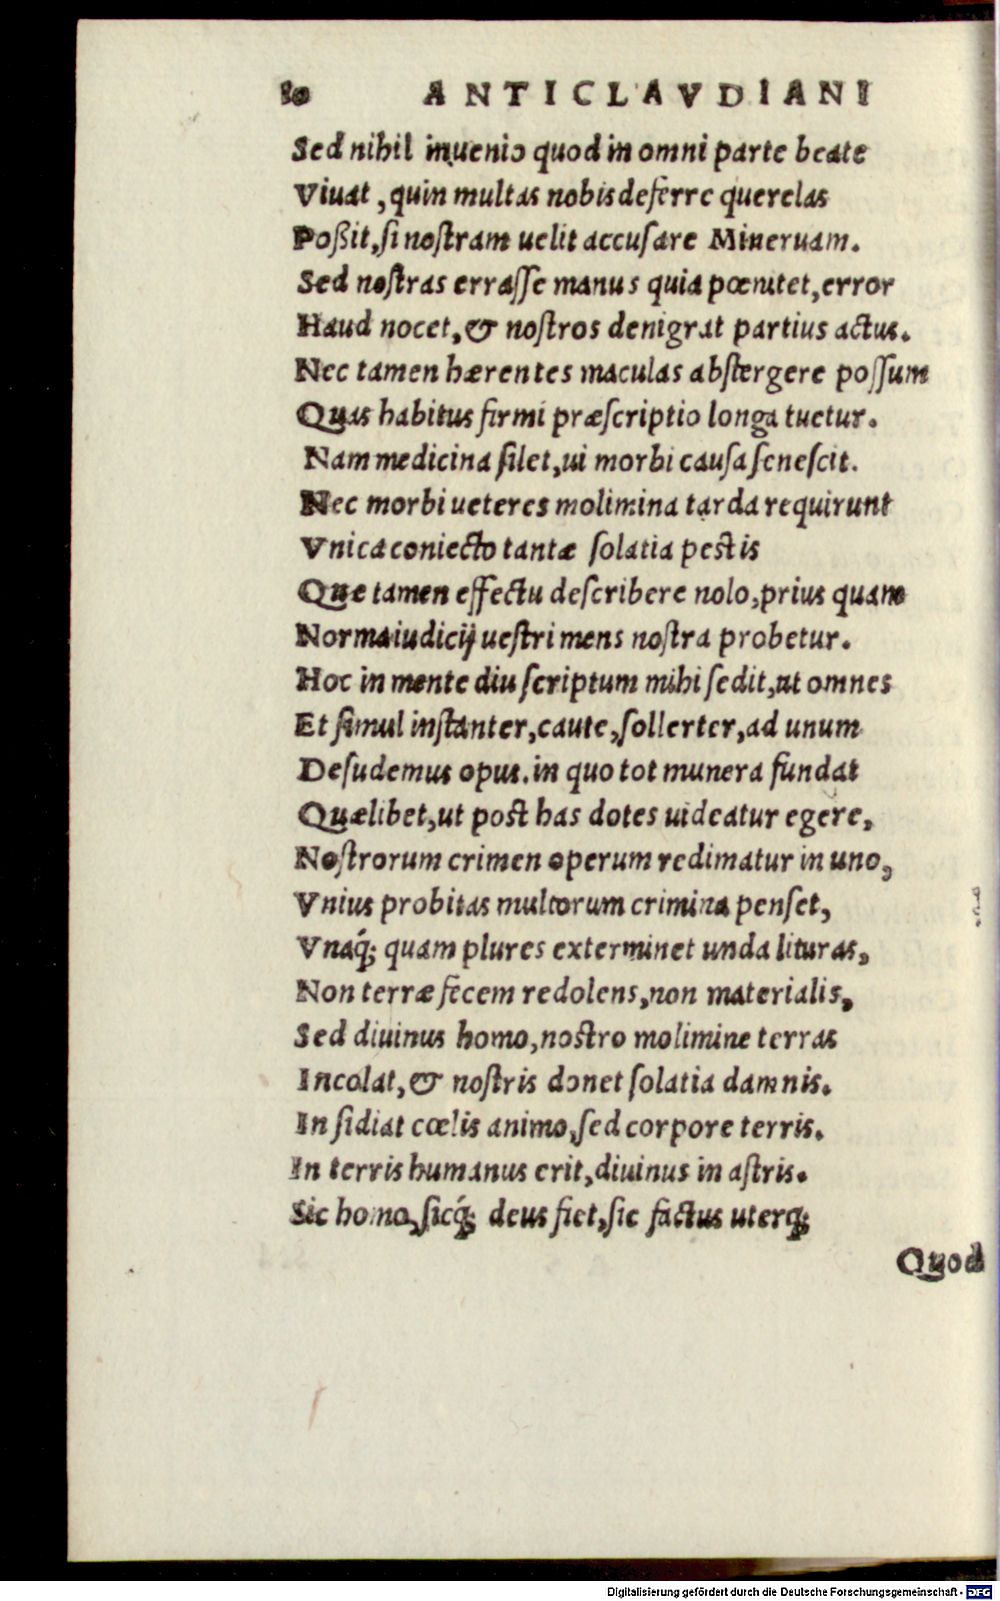 10 ANTICLAVDIANI
Sed nihil inuenio quod in omni parte beate
Viuat, quin multas nobis deferre querelas
Poßit, si nostram uelit accusare Mineruam.
Sed nostras errasse manus quia pœnitet, error
Haud nocet, & nostros denigrat partius actus.
Nec tamen hærentes maculas abstergere possum
Quas habitus firmi præscriptio longa tuetur.
Nam medicina silet, ui morbi causa senescit.
Nec morbi ueteres molimina tarda requirunt
Vnica coniecto tantæ solatia pestis
Que tamen effectu describere nolo, prius quam
Norma iudicij uestri mens nostra probetur.
Hoc in mente diu scriptum mihi sedit, ut omnes
Et simul instanter, caute, sollerter, ad unum
Desudemus opus. in quo tot munera fundat
Quælibet, ut post has dotes uideatur egere,
Nostrorum crimen operum redimatur in uno,
Vnius probitas multorum crimina penset,
Vnaq́; quam plures exterminet unda lituras,
Non terræ fecem redolens, non materialis,
Sed diuinus homo, nostro molimine terras
Incolat, & nostris donet solatia damnis.
In sidiat cœlis animo, sed corpore terris.
In terris humanus erit, diuinus in astris.
Sic homo, sicq́; deus fiet, sic factus uterq;
Quod
Digitalisierung gefördert durch die Deutsche Forschungsgemeinschaft - DFG